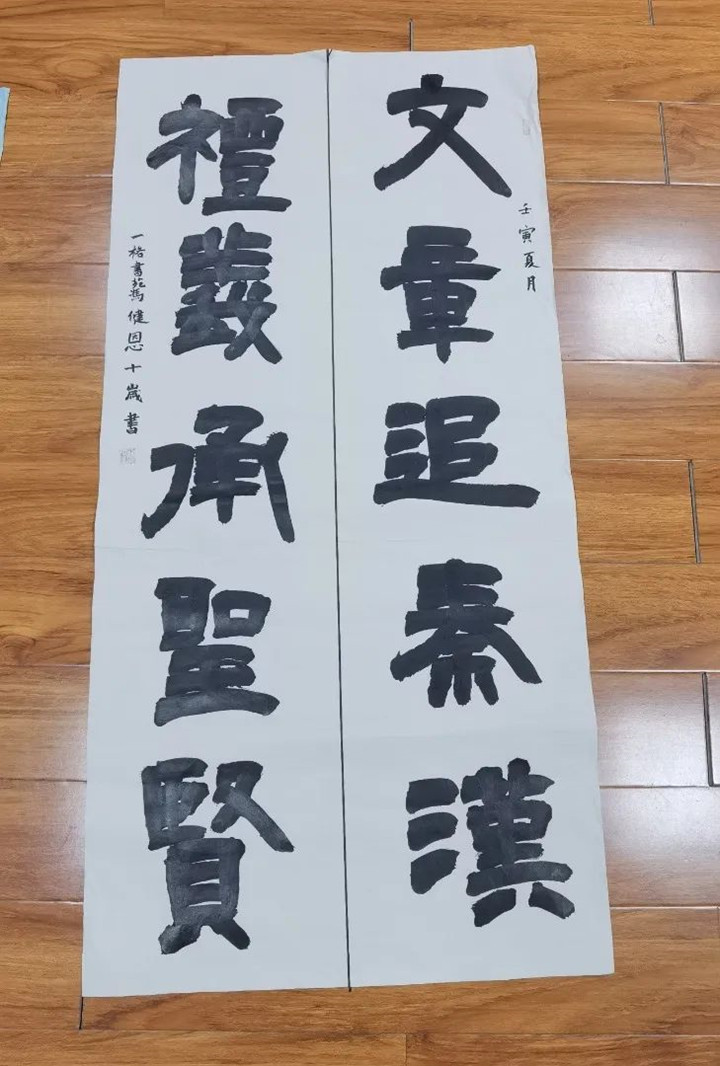 文章追秦漢
壬寅夏月
禮義承聖賢
一格書苑馮健恩十歲書